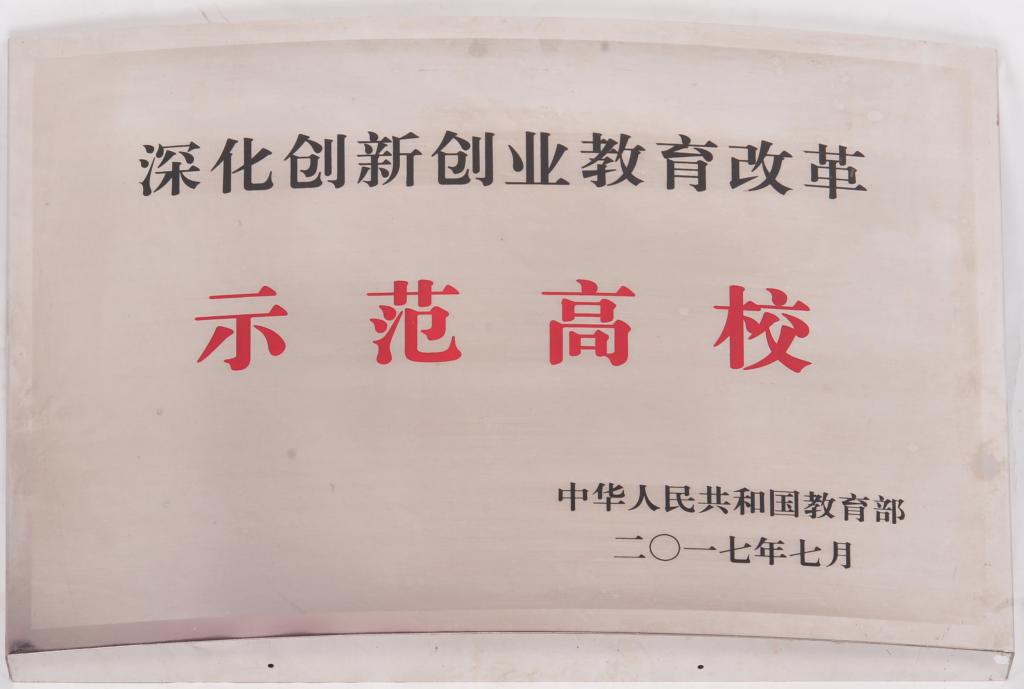 深化创新创业教育改革
示范高校
中华人民共和国教育部
二〇一七年七月